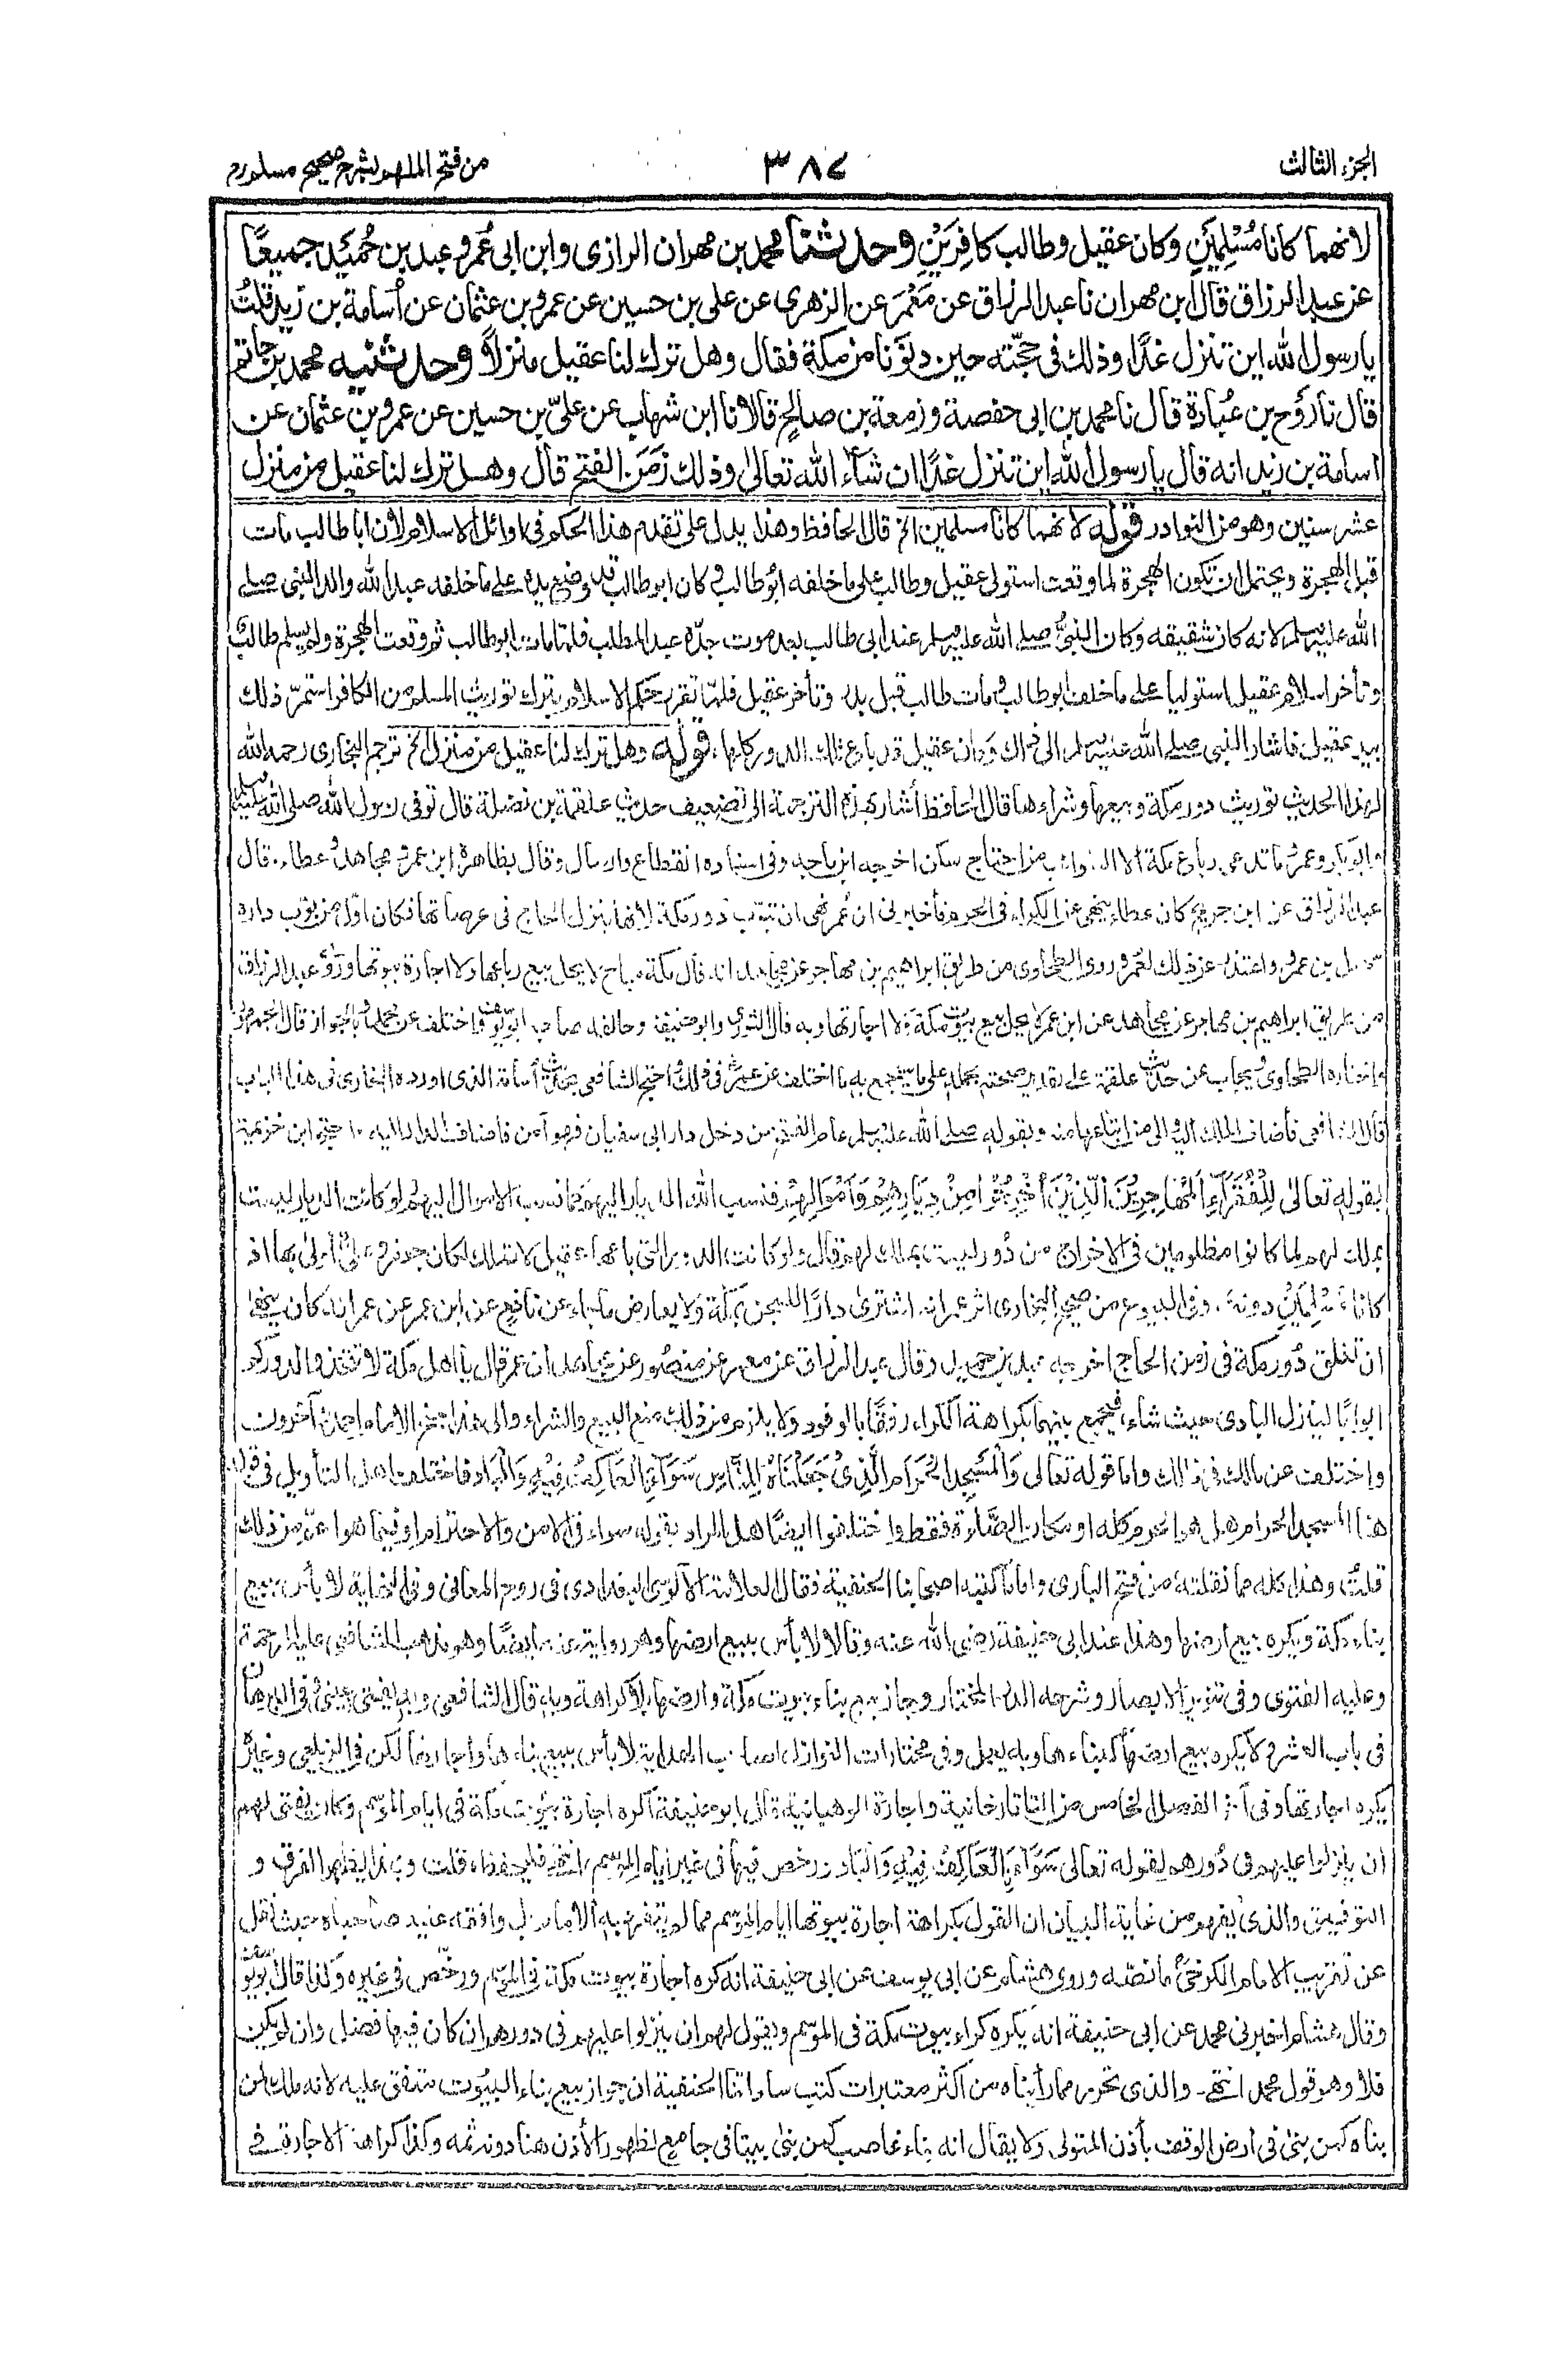 الجزء الثالث
٣٨٧
من فتح الملهم بشرح صحيح مسلم
لانهما كانا مُسْلِمَيْنِ وكان عقيل وطالب كافِرَيْنِ وحدثنا محمد بن مهران الرازى وابن ابى عُمر وعبد بن حُمَيْد جميعًا
عن عبد الرزاق قال ابن مهران نا عبد الرزاق عن مَعْمَر عن الزهرى عن على بن حسين عن عمرو بن عثمان عن أسامة بن زيد قلتُ
يا رسول الله اين تنزل غدًا وذلك فى حجّته حين دنَوْنا من مكة فقال وهل ترك لنا عقيل منزلاً وحدثنيه محمد بن حاتم
قال نا رَوْح بن عُبادة قال نا محمد بن ابى حفصة وزمعة بن صالح قالا نا ابن شهاب عن علىّ بن حسين عن عمرو بن عثمان عن
اسامة بن زيد انه قال يا رسول الله اين تنزل غدًا ان شاء الله تعالى وذلك زَمَنَ الفتح قال وهل ترك لنا عقيل من منزل
عشر سنين وهو من النوادر قوله لانهما كانا مسلمين الخ قال الحافظ وهذا يدل على تقدم هذا الحكم فى اوائل الاسلام لان ابا طالب مات
قبل الهجرة ويحتمل ان تكون الهجرة لما وقعت استولى عقيل وطالب على ما خلفه ابو طالب وكان ابو طالب قد وضع يده على ما خلفه عبد الله والد النبى صلى
الله عليه وسلم لانه كان شقيقه وكان النبىّ صلى الله عليه وسلم عند ابى طالب بعد موت جدّه عبد المطلب فلما مات ابو طالب ثم وقعت الهجرة ولم يسلم طالب
وتأخر اسلام عقيل استوليا على ما خلف ابو طالب ومات طالب قبل بدر وتأخر عقيل فلمّا تقرر حكم الاسلام بترك توريث المسلم من الكافر استمرّ ذلك
بيد عقيل فاشار النبى صلى الله عليه وسلم الى ذلك وكان عقيل قد باع تلك الدور كلها، قوله وهل ترك لنا عقيل من منزل الخ ترجم البخارى رحمه الله
لهذا الحديث توريث دور مكة وبيعها وشراءها قال الحافظ أشار بهذه الترجمة الى تضعيف حديث علقمة بن نضلة قال توفى رسول الله صلى الله عليه وسلم
وابو بكر وعمر وما تدعى رباع مكة الا السوائب من احتاج سكن اخرجه ابن ماجه وفى اسناده انقطاع وارسال وقال بظاهره ابن عمر ومجاهد وعطاء. قال
عبد الرزاق عن ابن جريج كان عطاء ينهى عن الكراء فى الحرم فأخبرنى ان عُمر نهى ان تبوّب دور مكة لانها ينزل الحاج فى عرصاتها فكان اوّل من بوّب داره
سهيل بن عمرو واعتذر عن ذلك لعمر وروى الطحاوى من طريق ابراهيم بن مهاجر عن مجاهد انه قال مكة مباح لا يحل بيع رباعها ولا اجارة بيوتها وروى عبد الرزاق
من طريق ابراهيم بن مهاجر عن مجاهد عن ابن عمر لا يحل بيع بيوت مكة ولا اجارتها وبه قال الثورى وابو حنيفة وخالفه صاحبه ابو يوسف واختلف عن محمد وبالجواز قال الجمهور
واختاره الطحاوى ويجاب عن حديث علقمة على تقدير صحته بحمله على ما سيجمع به ما اختلف عن عمر فى ذلك واحتج الشافعى بحديث أسامة الذى اورده البخارى فى هذا الباب
قال الشافعى فأضاف الملك اليه والى من ابتاعها منه وبقوله صلى الله عليه وسلم عام الفتح من دخل دار ابى سفيان فهو آمن فاضاف الدار اليه واحتج ابن خزيمة
بقوله تعالى لِلْفُقَرَآءِ الْمُهَاجِرِيْنَ الَّذِيْنَ أُخْرِجُوْا مِنْ دِيَارِهِمْ وَأَمْوَالِهِمْ فنسب الله الديار اليهم كما نسب الاموال اليهم ولو كانت الديار ليست
بملك لهم لما كانوا مظلومين فى الاخراج من دُور ليست بملك لهم قال ولو كانت الدور التى باعها عقيل لا تملك لكان جعفر وعلىّ أولى بها اذ
كانا مسلمَيْنِ دونه. وفى البيوع من صحيح البخارى اثر عمر انه اشترى دارًا للسجن بمكة ولا يعارض ما جاء عن نافع عن ابن عمر عن عمر انه كان ينهى
ان تغلق دُور مكة فى زمن الحاج اخرجه عبد بن حميد وقال عبد الرزاق عن معمر عن منصور عن مجاهد ان عمر قال يا اهل مكة لا تتخذوا لدوركم
ابوابًا لينزل البادى حيث شاء، فيجمع بينهما بكراهة الكراء رفقًا بالوفود ولا يلزم من ذلك منع البيع والشراء والى هذا جنح الامام احمد وآخرون
واختلف عن مالك فى ذلك واما قوله تعالى وَالْمَسْجِدِ الْحَرَامِ الَّذِىْ جَعَلْنَاهُ لِلنَّاسِ سَوَآءَ ۨالْعَاكِفُ فِيْهِ وَالْبَادِ فاختلف اهل التأويل فى قوله
هنا المسجد الحرام هل هو الحرم كله او مكان الصّلوٰة فقط واختلفوا ايضًا هل المراد بقوله سواء فى الامن والاحترام او فيما هو اعمّ من ذلك
قلتُ وهذا كله مما نقلته من فتح البارى واما ما كتبه اصحابنا الحنفية فقال العلامة الآلوسى البغدادى فى روح المعانى وفى النهاية لا بأس ببيع
بناء مكة ويكره بيع ارضها وهذا عند ابى حنيفة رضى الله عنه وقالا لا بأس ببيع ارضها وهو رواية عنه ايضًا وهو مذهب الشافعى عليه الرحمة
وعليه الفتوى وفى تنوير الابصار وشرحه الدر المختار وجاز بيع بناء بيوت مكة وارضها بلا كراهة وبه قال الشافعى وبه يفتى عينى وفى البرهان
فى باب العشر ولا يكره بيع ارضها كبناءها وبه يعمل وفى مختارات النوازل لصاحب الهداية لا بأس ببيع بناءها واجارتها لكن فى الزيلعى وغيره
يكره اجارتها وفى آخر الفصل الخامس من التاتارخانية واجارة الوهبانية قال ابو حنيفة أكره اجارة بيوت مكة فى ايام الموسم وكان يفتى لهم
ان ينزلوا عليهم فى دُورهم لقوله تعالى سَوَآءَ ۨالْعَاكِفُ فِيْهِ وَالْبَادِ ورخص فيها فى غير ايام الموسم، انتهى فليحفظ، قلت وبهذا يظهر الفرق و
التوفيق والذى يفهم من غاية البيان ان القول بكراهة اجارة بيوتها ايام الموسم مما لم يتفرد به الامام بل وافقه عليه صاحباه حيث نقل
عن تقريب الامام الكرخىّ ما نصّه وروى هشام عن ابى يوسف عن ابى حنيفة انه كره اجارة بيوت مكة فى الموسم ورخّص فى غيره وكذا قال ابو يوسف
وقال هشام اخبرنى محمد عن ابى حنيفة انه يكره كراء بيوت مكة فى الموسم ويقول لهم ان ينزلوا عليهم فى دورهم ان كان فيها فضل وان لم يكن
فلا وهو قول محمد انتهى۔ والذى تحرر مما رأيناه من أكثر معتبرات كتب ساداتنا الحنفية ان جواز بيع بناء البيُوت متفق عليه لانه ملك لمن
بناه كمن بنى فى ارض الوقف بأذن المتولى ولا يقال انه بناء غاصب كمن بنى بيتا فى جامع لظهور الأذن هنا دونه ثمه وكذا كراهة الاجارة فى